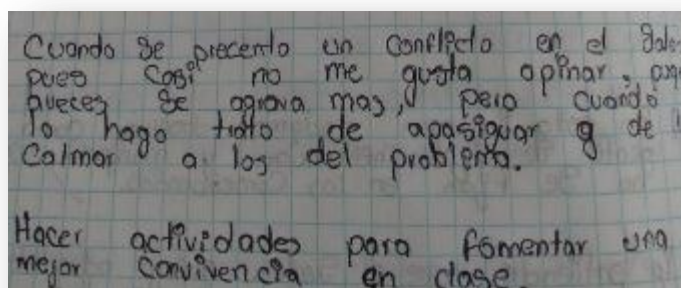 Cuando se precento un conflicto en el salo
pues casi no me gusta opinar, porq
aveces se agrava mas, pero cuando
lo hago trato de apasiguar y de
calmar a los del problema.
Hacer actividades para fomentar una
mejor convivencia en clase.